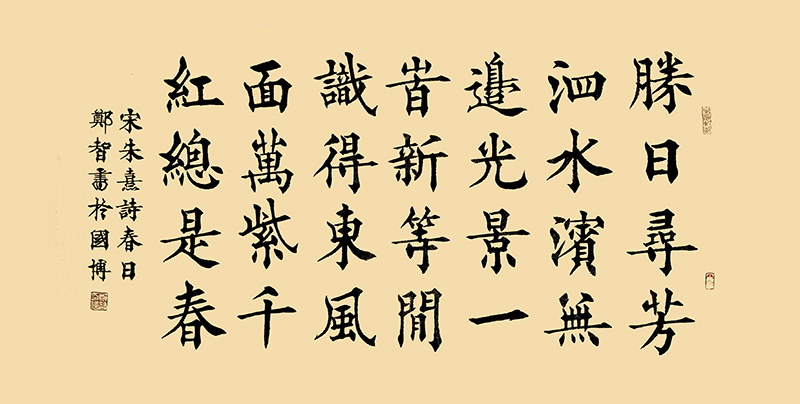 勝日尋芳
泗水濱無
邊光景一
旹新等閒
識得東風
面萬紫千
紅總是春
宋朱熹詩春日
鄭智書於國博